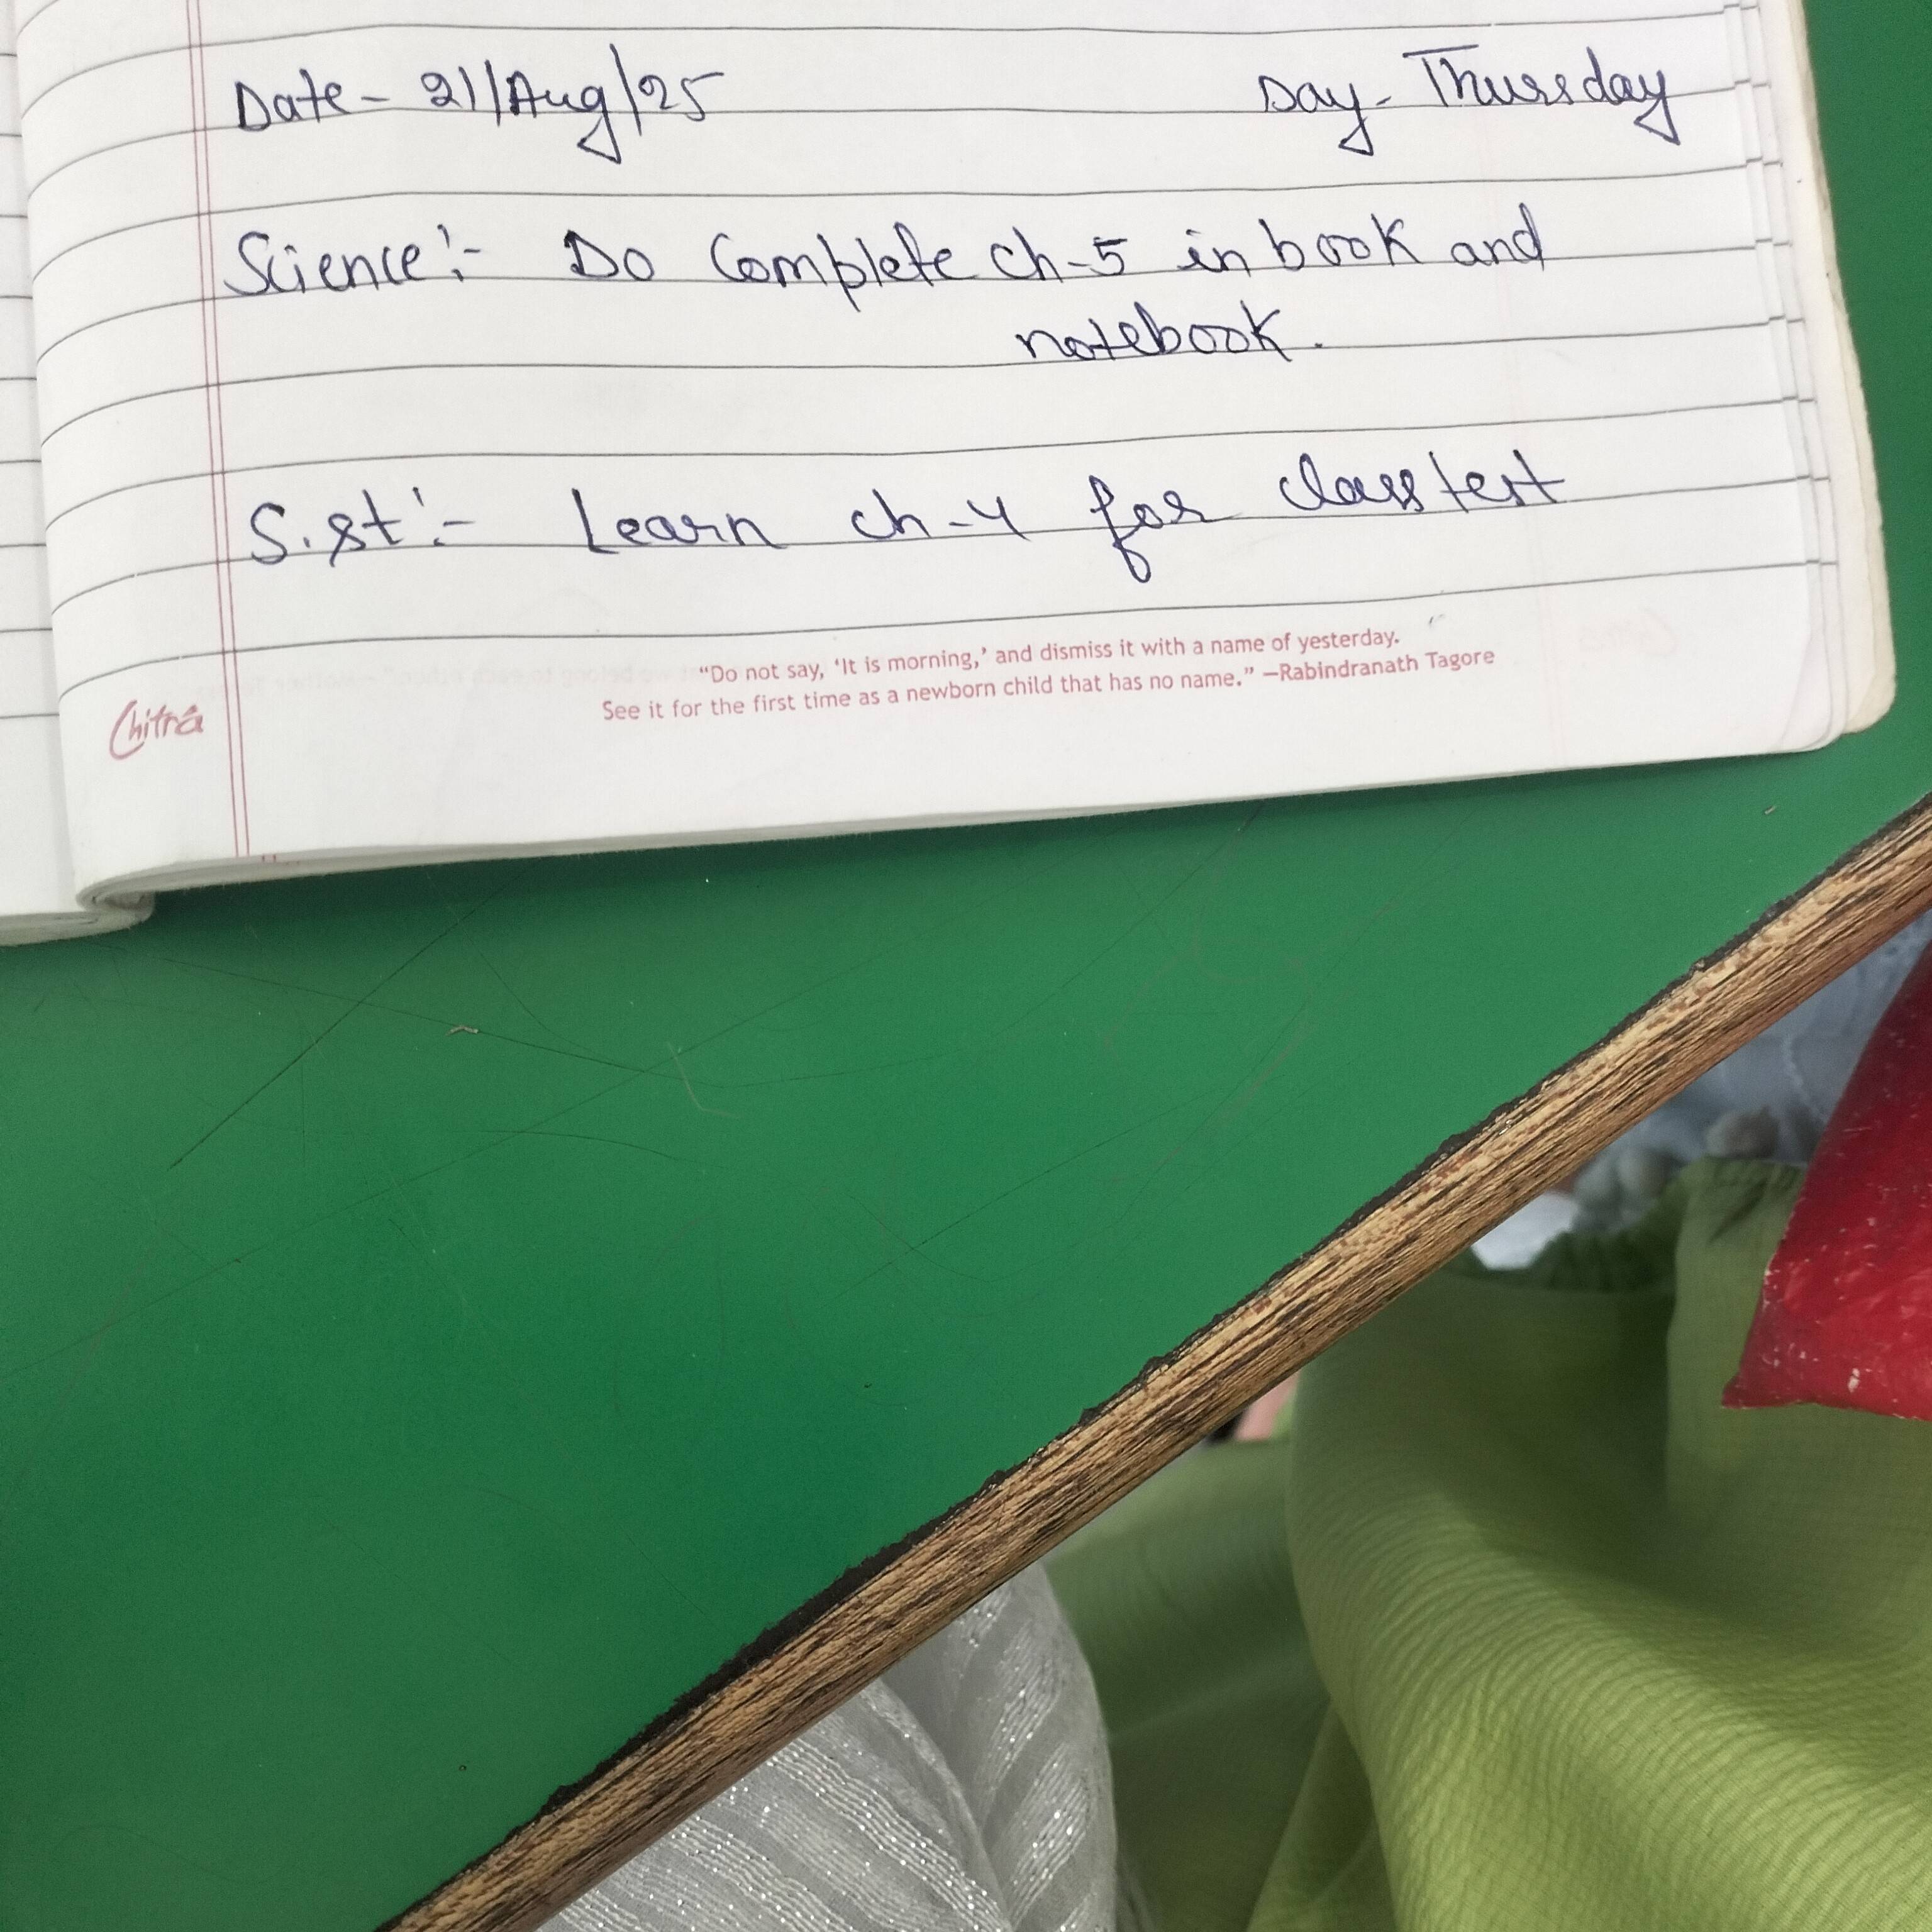 Date - 21/Aug/25 Day - Thursday
Science :- Do Complete ch-5 in book and
notebook.
S.st :- Learn ch-4 for class test
"Do not say, 'It is morning,' and dismiss it with a name of yesterday.
See it for the first time as a newborn child that has no name." —Rabindranath Tagore
Chitra